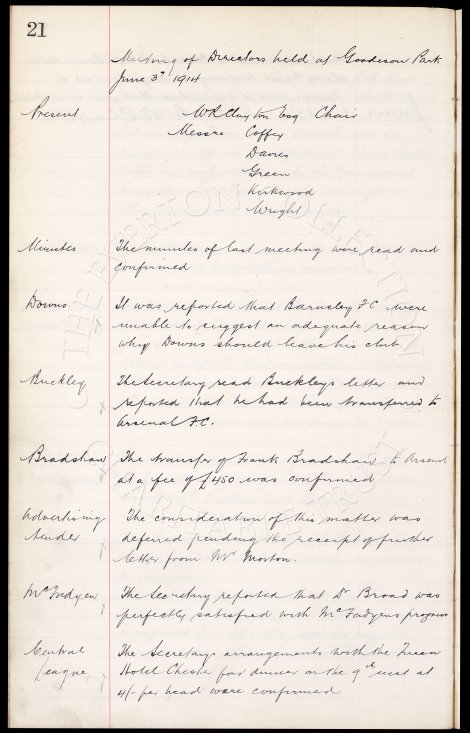 21
Meeting of Directors held at Goodison Park
June 3rd 1914
Present W R Clayton Esq Chair
Messrs Coffey
Davies
Green
Kirkwood
Wright
Minutes The minutes of last meeting were read and
confirmed
Downs It was reported that Barnsley FC were
unable to suggest an adequate reason
why Downs should leave his club.
Buckley The Secretary read Buckleys letter and
reported that he had been transferred to
Arsenal F.C.
Bradshaw The transfer of Frank Bradshaw to Arsenal
at a fee of £450 was confirmed
Advertising The consideration of this matter was
tender deferred pending the receipt of further
letter from Mr Morton.
McFadyen The Secretary reported that Dr Broad was
perfectly satisfied with McFadyens progress
Central The Secretarys arrangements with the Queen
League Hotel Chester for dinner on the 9th inst at
4/- per head were confirmed
THE EVERTON COLLECTION
CHARITABLE TRUST